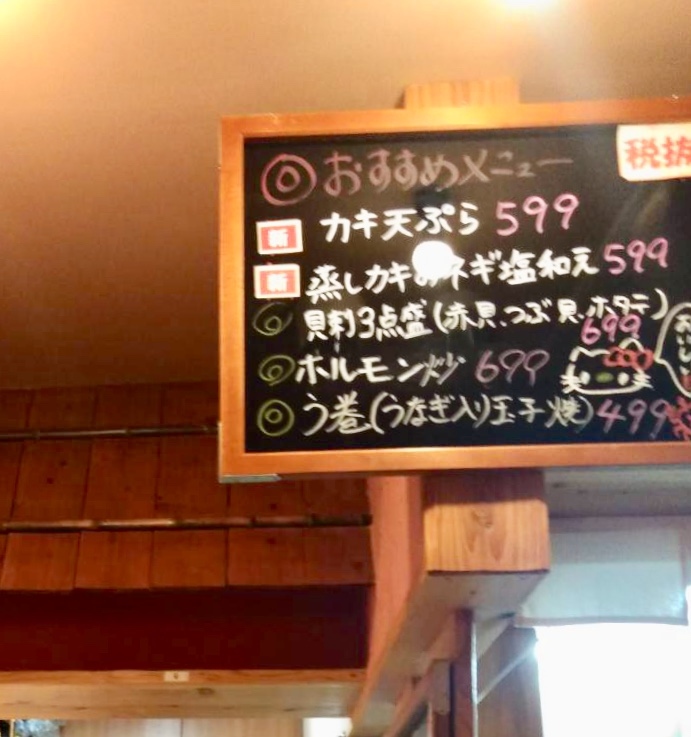 ◎おすすめメニュー
税抜
新 カキ天ぷら 599
新 蒸しカキのネギ塩和え 599
◎ 貝刺3点盛(赤貝、つぶ貝、ホタテ) 699
◎ ホルモン炒 699
おいしい
◎ う巻(うなぎ入り玉子焼) 499